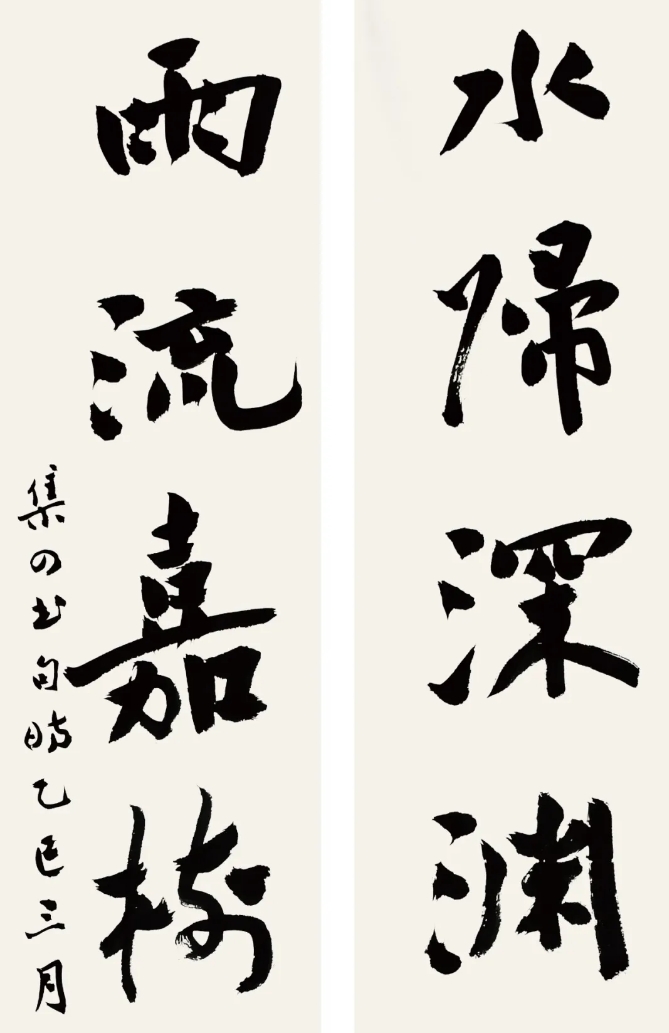 水歸深淵
雨流嘉樹
集四書句時乙巳三月